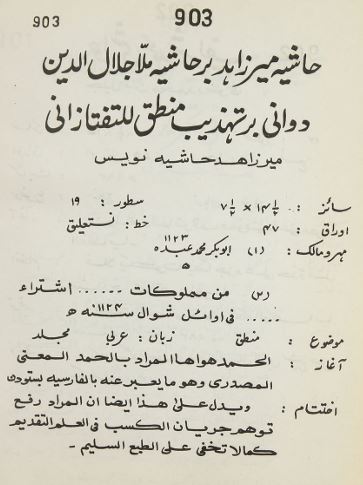 903 903
حاشیہ میرزاہد بر حاشیہ ملّا جلال الدین
دوانی بر تہذیب منطق للتفتازانی
میرزاھد حاشیہ نویس
سائز : ۱۴½ × ۷½ سطور : ۱۹
اوراق : ۴۷ خط : نستعلیق
مہر و مالک : (۱) ابوبکر محمد عبدہ ۱۱۲۳
ھ
من مملوکات ...... اشتراء
..... فی اوائل شوال سنہ ۱۱۲۴ ھ
موضوع : منطق زبان : عربی مجلد
آغاز : الحمد ھو اھا المراد بالحمد المعنی
المصدری وھو ما یعبر عنہ بالفارسیہ بستودن
اختتام : ویدل علیٰ ھذا ایضا ان المراد رفع
توھم جریان الکسب فی العلم التقدیم
کمالا تخفی علی الطبع السلیم -